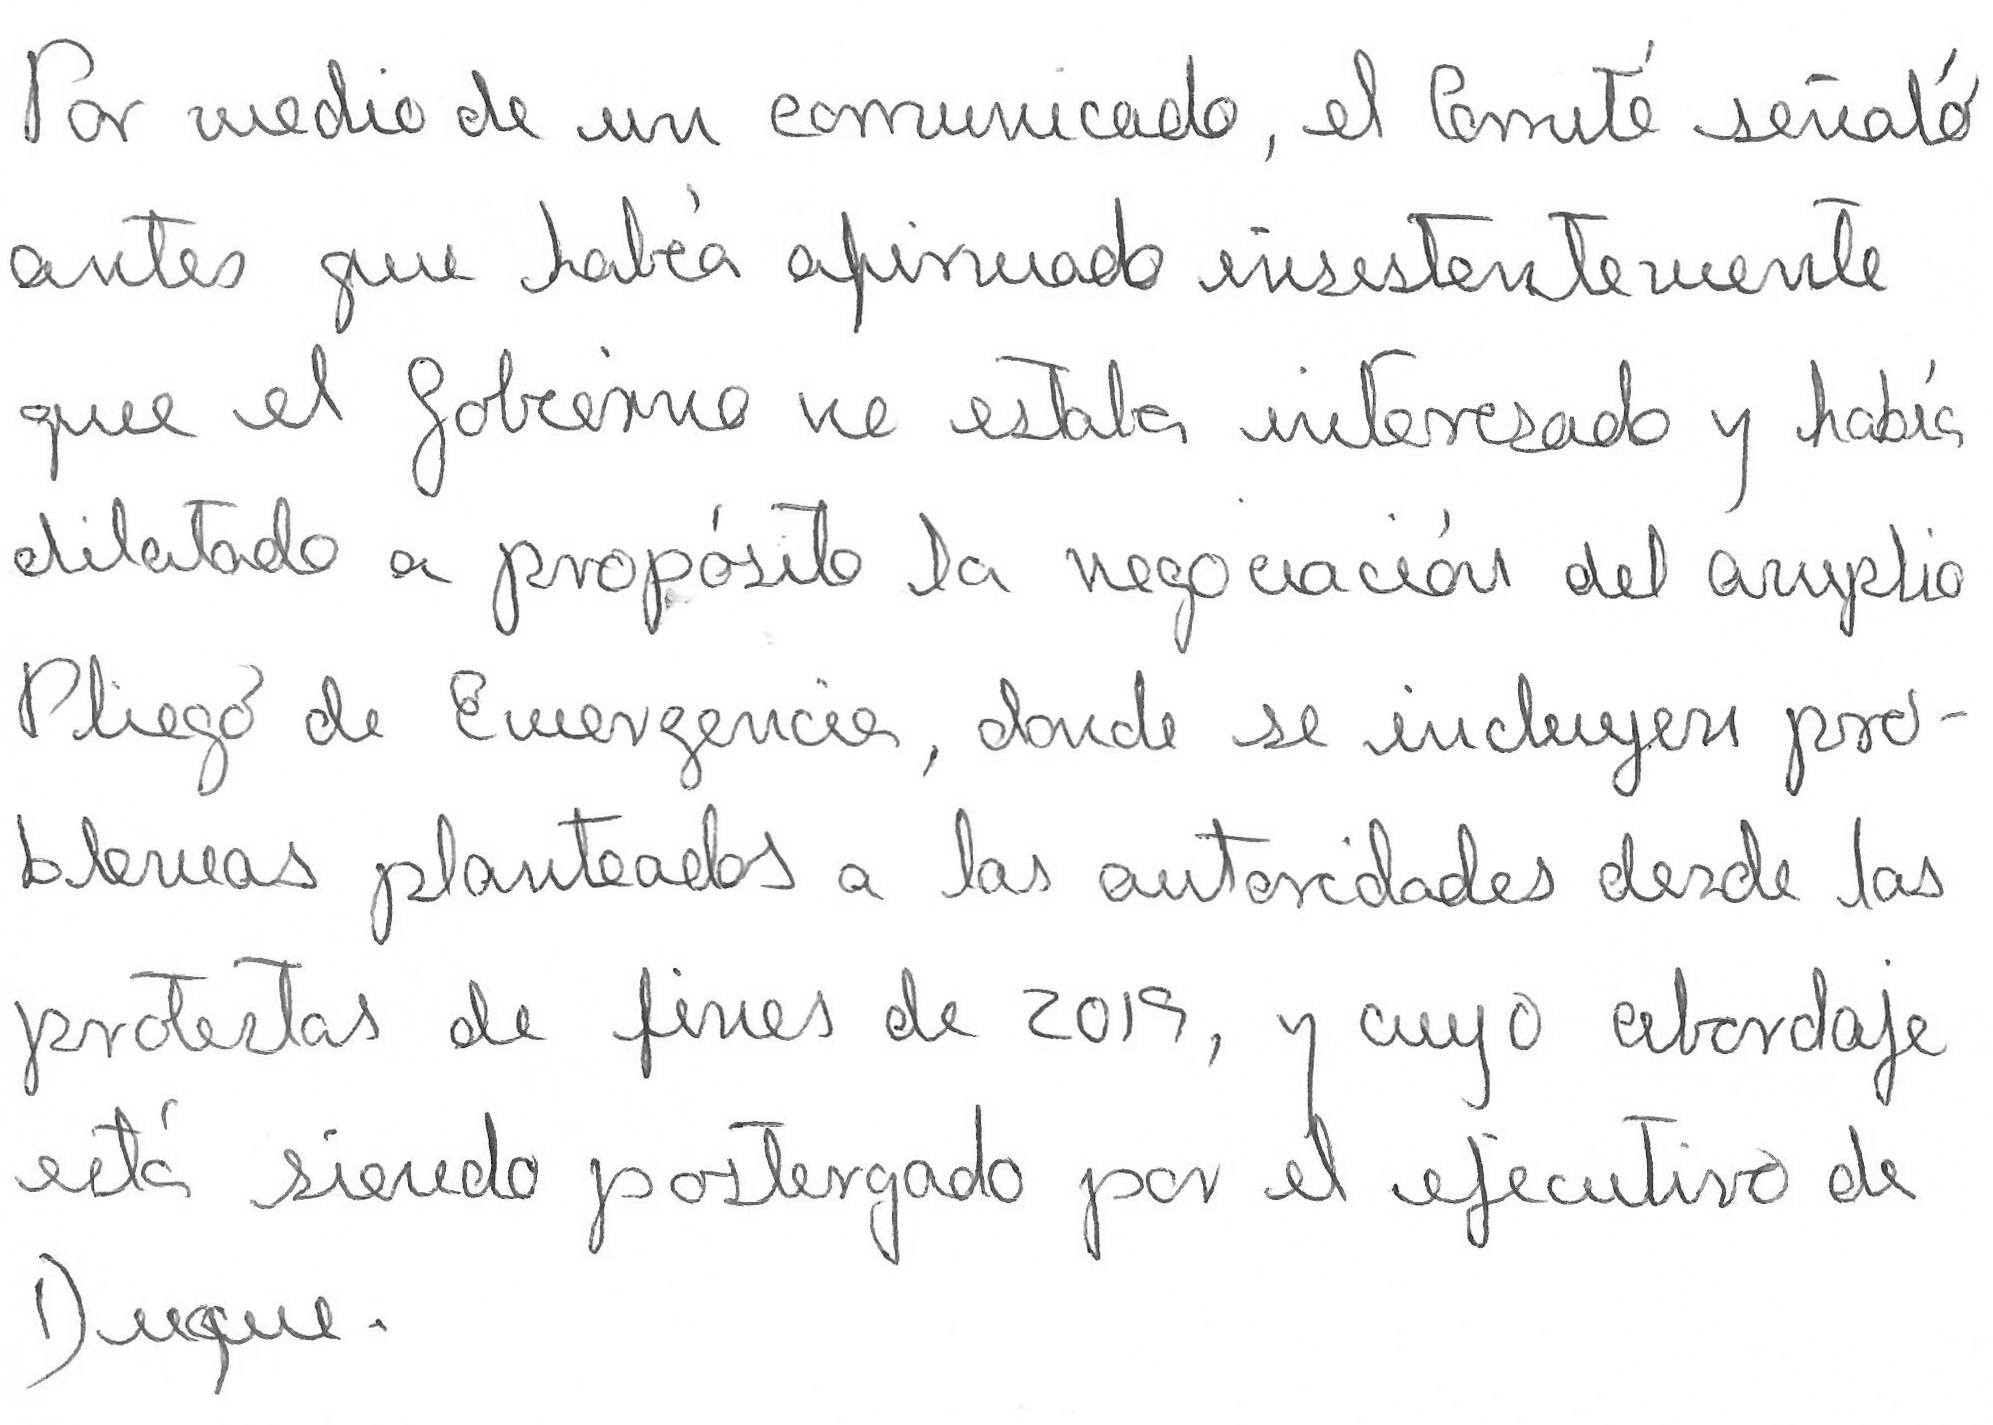 Por medio de un comunicado, el Comité señaló
antes que había afirmado insistentemente
que el Gobierno no estaba interesado y había
dilatado a propósito la negociación del amplio
Pliego de Emergencia, donde se incluyen pro-
blemas planteados a las autoridades desde las
protestas de fines de 2019, y cuyo abordaje
está siendo postergado por el ejecutivo de
Duque.